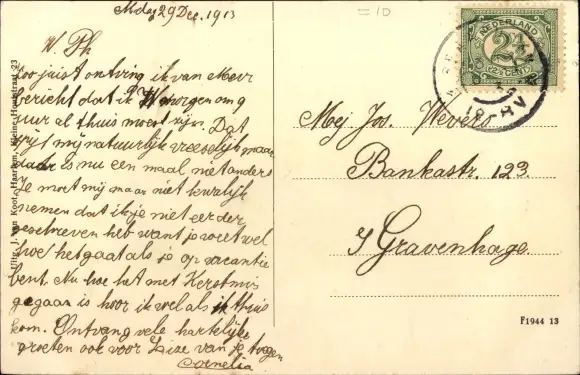 Mdag 29 Dec. 1913
W Ph
Zoo juist ontving ik van Mevr
bericht dat ik morgen om 9
uur al thuis moest zijn. Dat
spijt mij natuurlijk vreeselijk maar
daar is nu een maal niet anders
Je moet mij maar niet kwalijk
nemen dat ik je niet eerder
geschreven heb want je weet wel
hoe het gaat als je op vacantie
bent. Nu hoe het met Kerstmis
gegaan is hoor ik wel als ik thuis
kom. Ontvang vele hartelijke
groeten ook voor Lize van je
Cornelia
Uitg. J. van Koot, Haarlem, Kleine Houtstraat 23
=10
NEDERLAND
2½
(2½ CENT)
Mej Jos. Wevers
Bankastr. 123
s Gravenhage
F1944 13